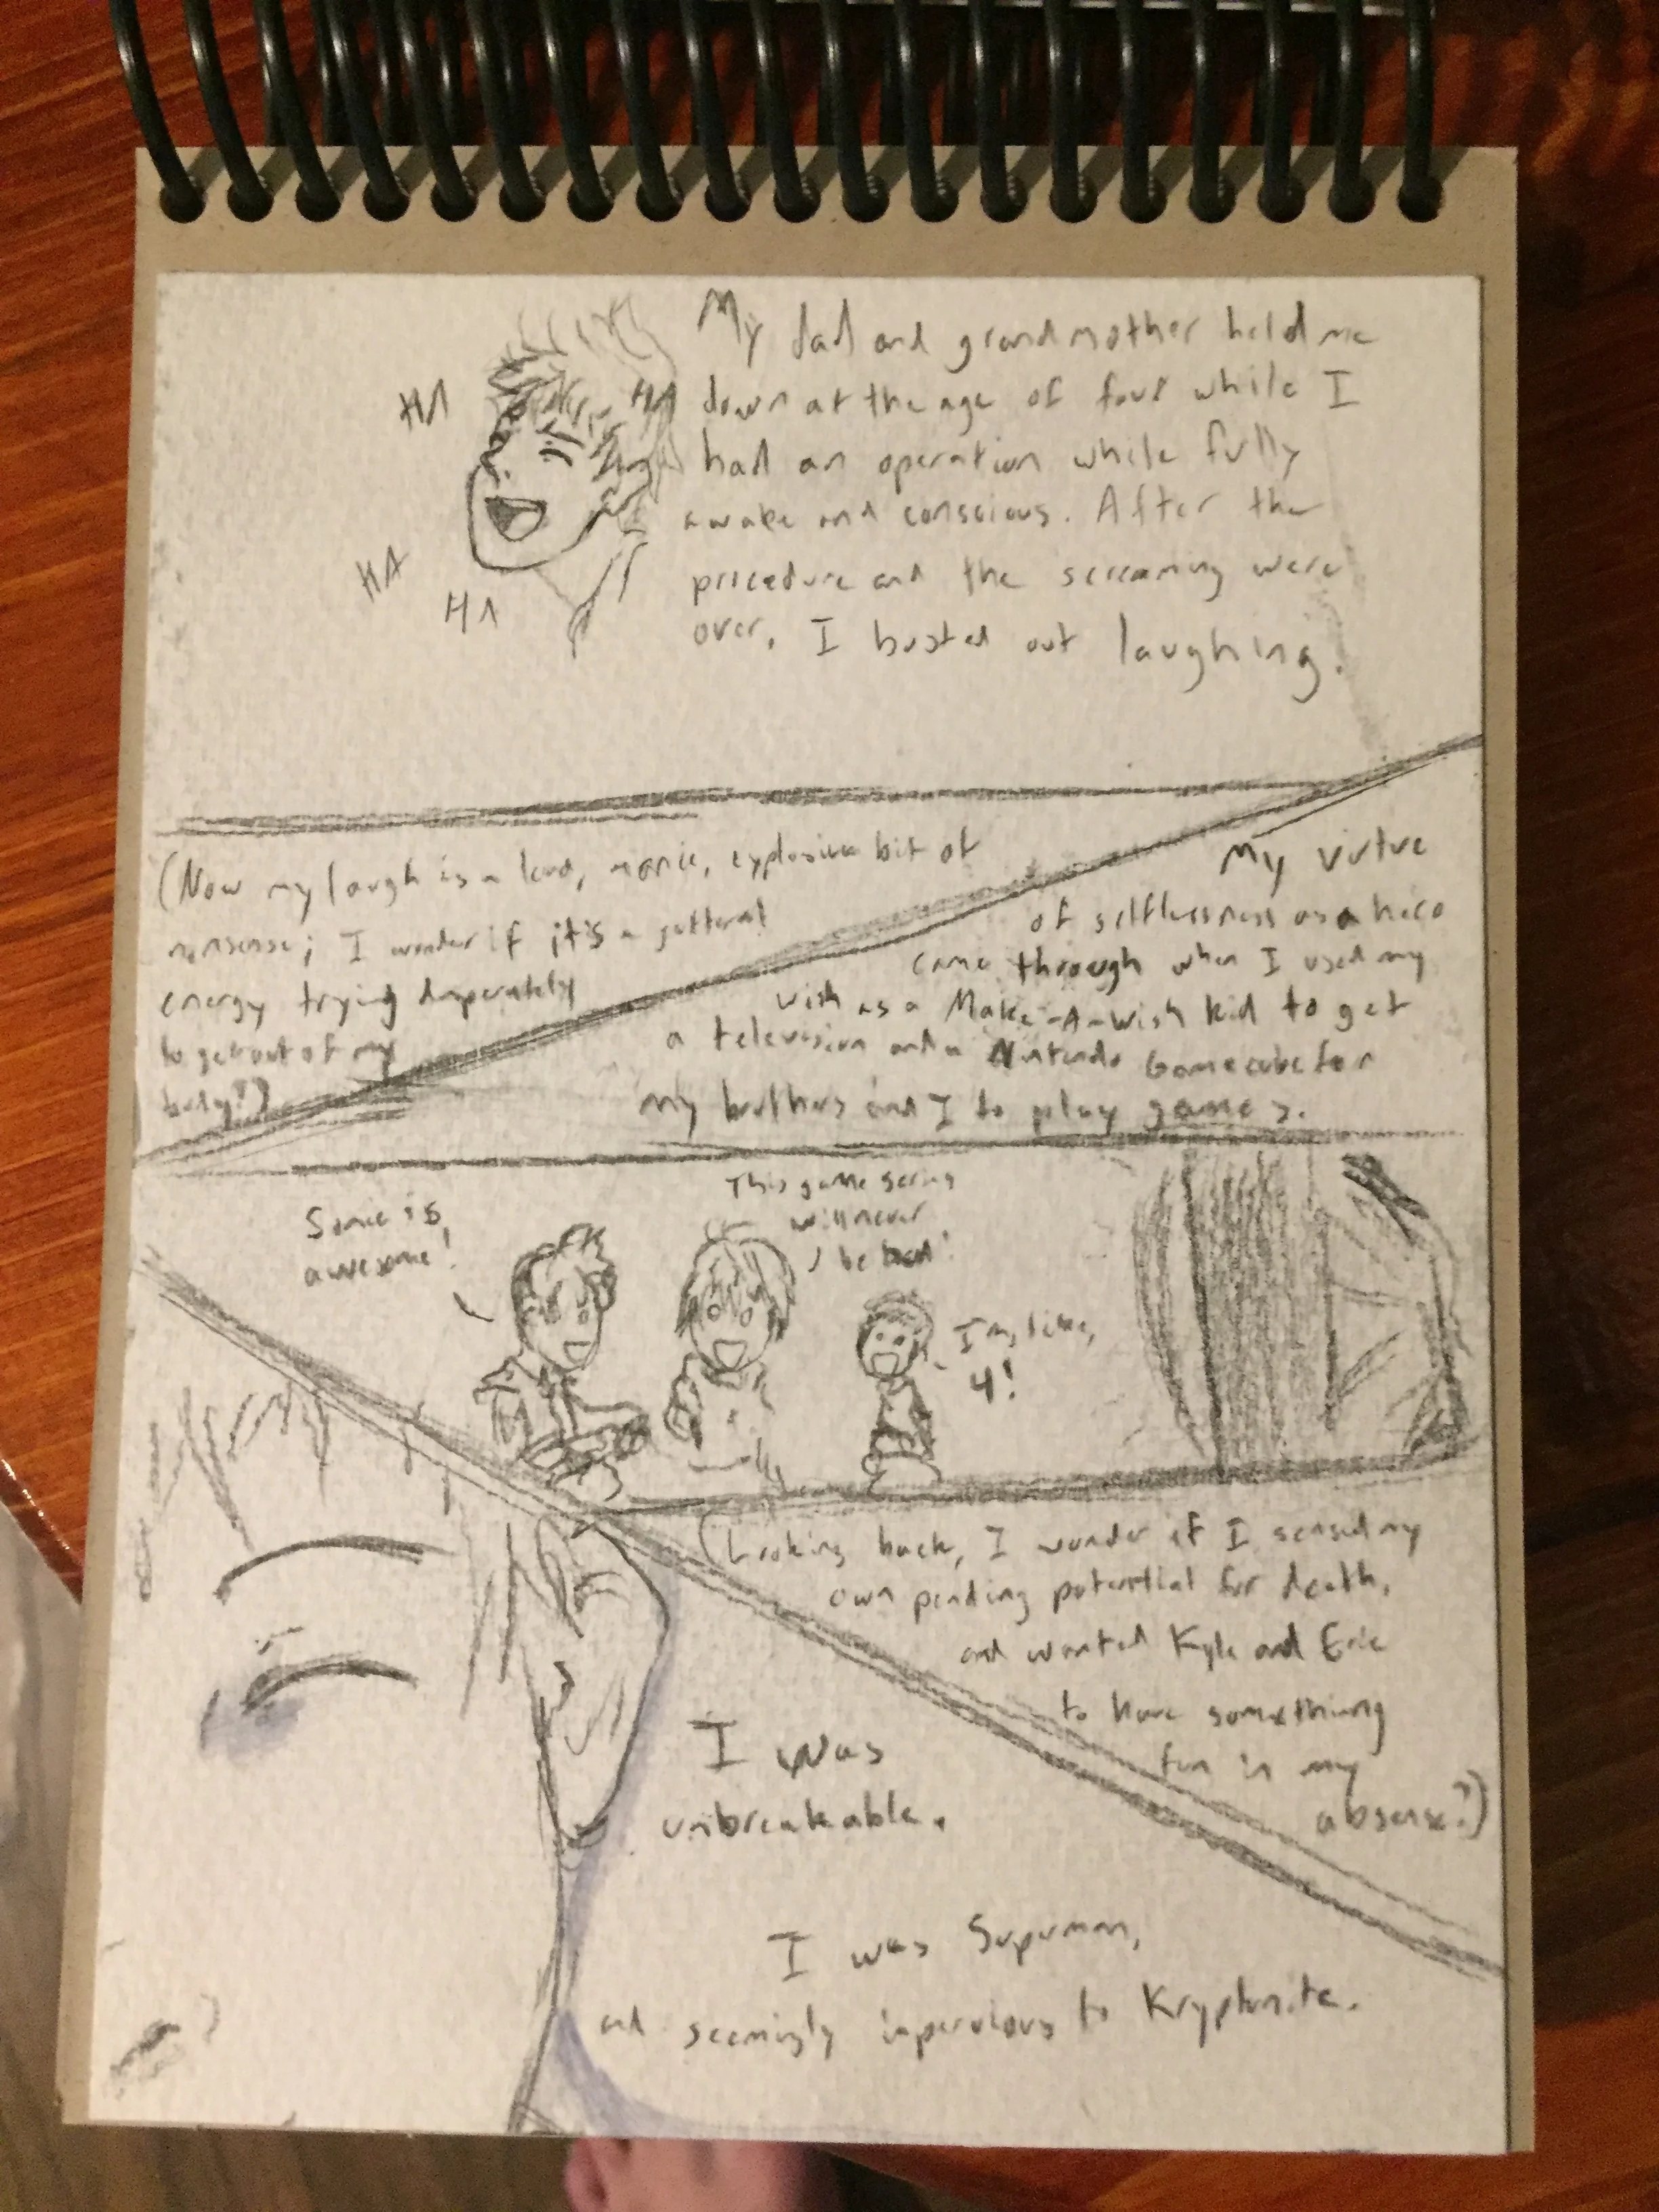 My dad and grandmother held me
down at the age of four while I
had an operation while fully
awake and conscious. After the
procedure and the screaming were
over, I busted out laughing.
HA
HA
HA
HA
(Now my laugh is a loud, manic, explosive bit of
nonsense; I wonder if it's a gutteral
energy trying desperately
to get out of my
body?)
My virtue
of selflessness as a hero
came through when I used my
wish as a Make-A-Wish kid to get
a television and a Nintendo Gamecube for
my brothers and I to play games.
Sonic is
awesome!
This game series
will never
be bad!
I'm, like,
4!
(Looking back, I wonder if I sensed my
own pending potential for death,
and wanted Kyle and Eric
to have something
fun in my
absense?)
I was
unbreakable.
I was Superman,
and seemingly impervious to Kryptonite.